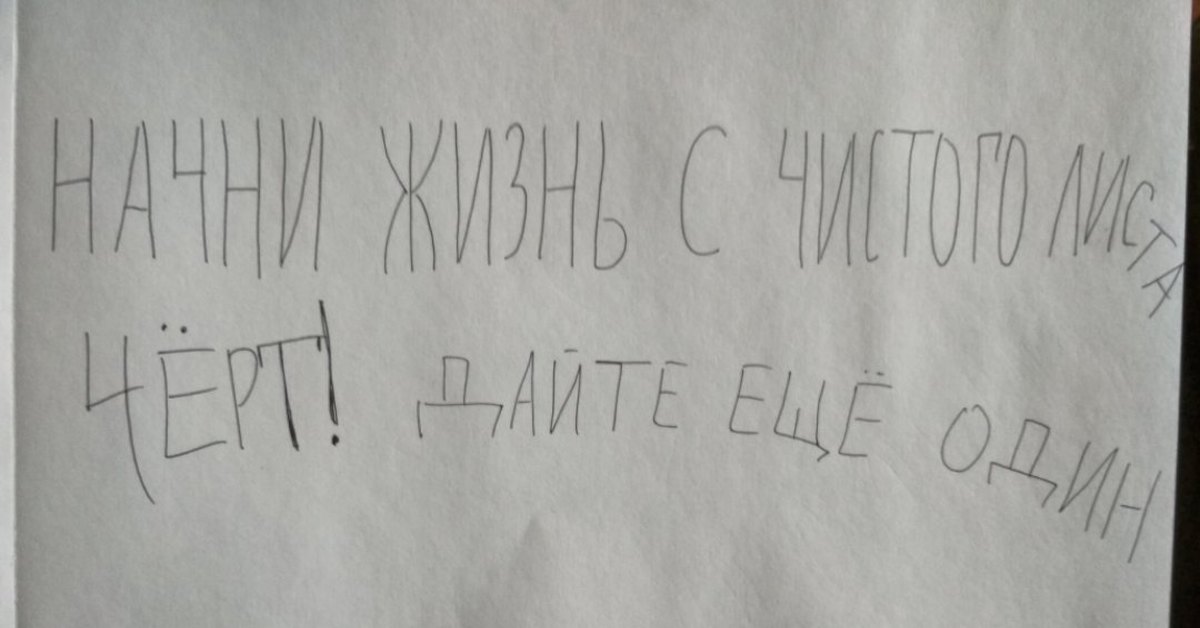 НАЧНИ ЖИЗНЬ С ЧИСТОГО ЛИСТА
ЧЁРТ! ДАЙТЕ ЕЩЁ ОДИН